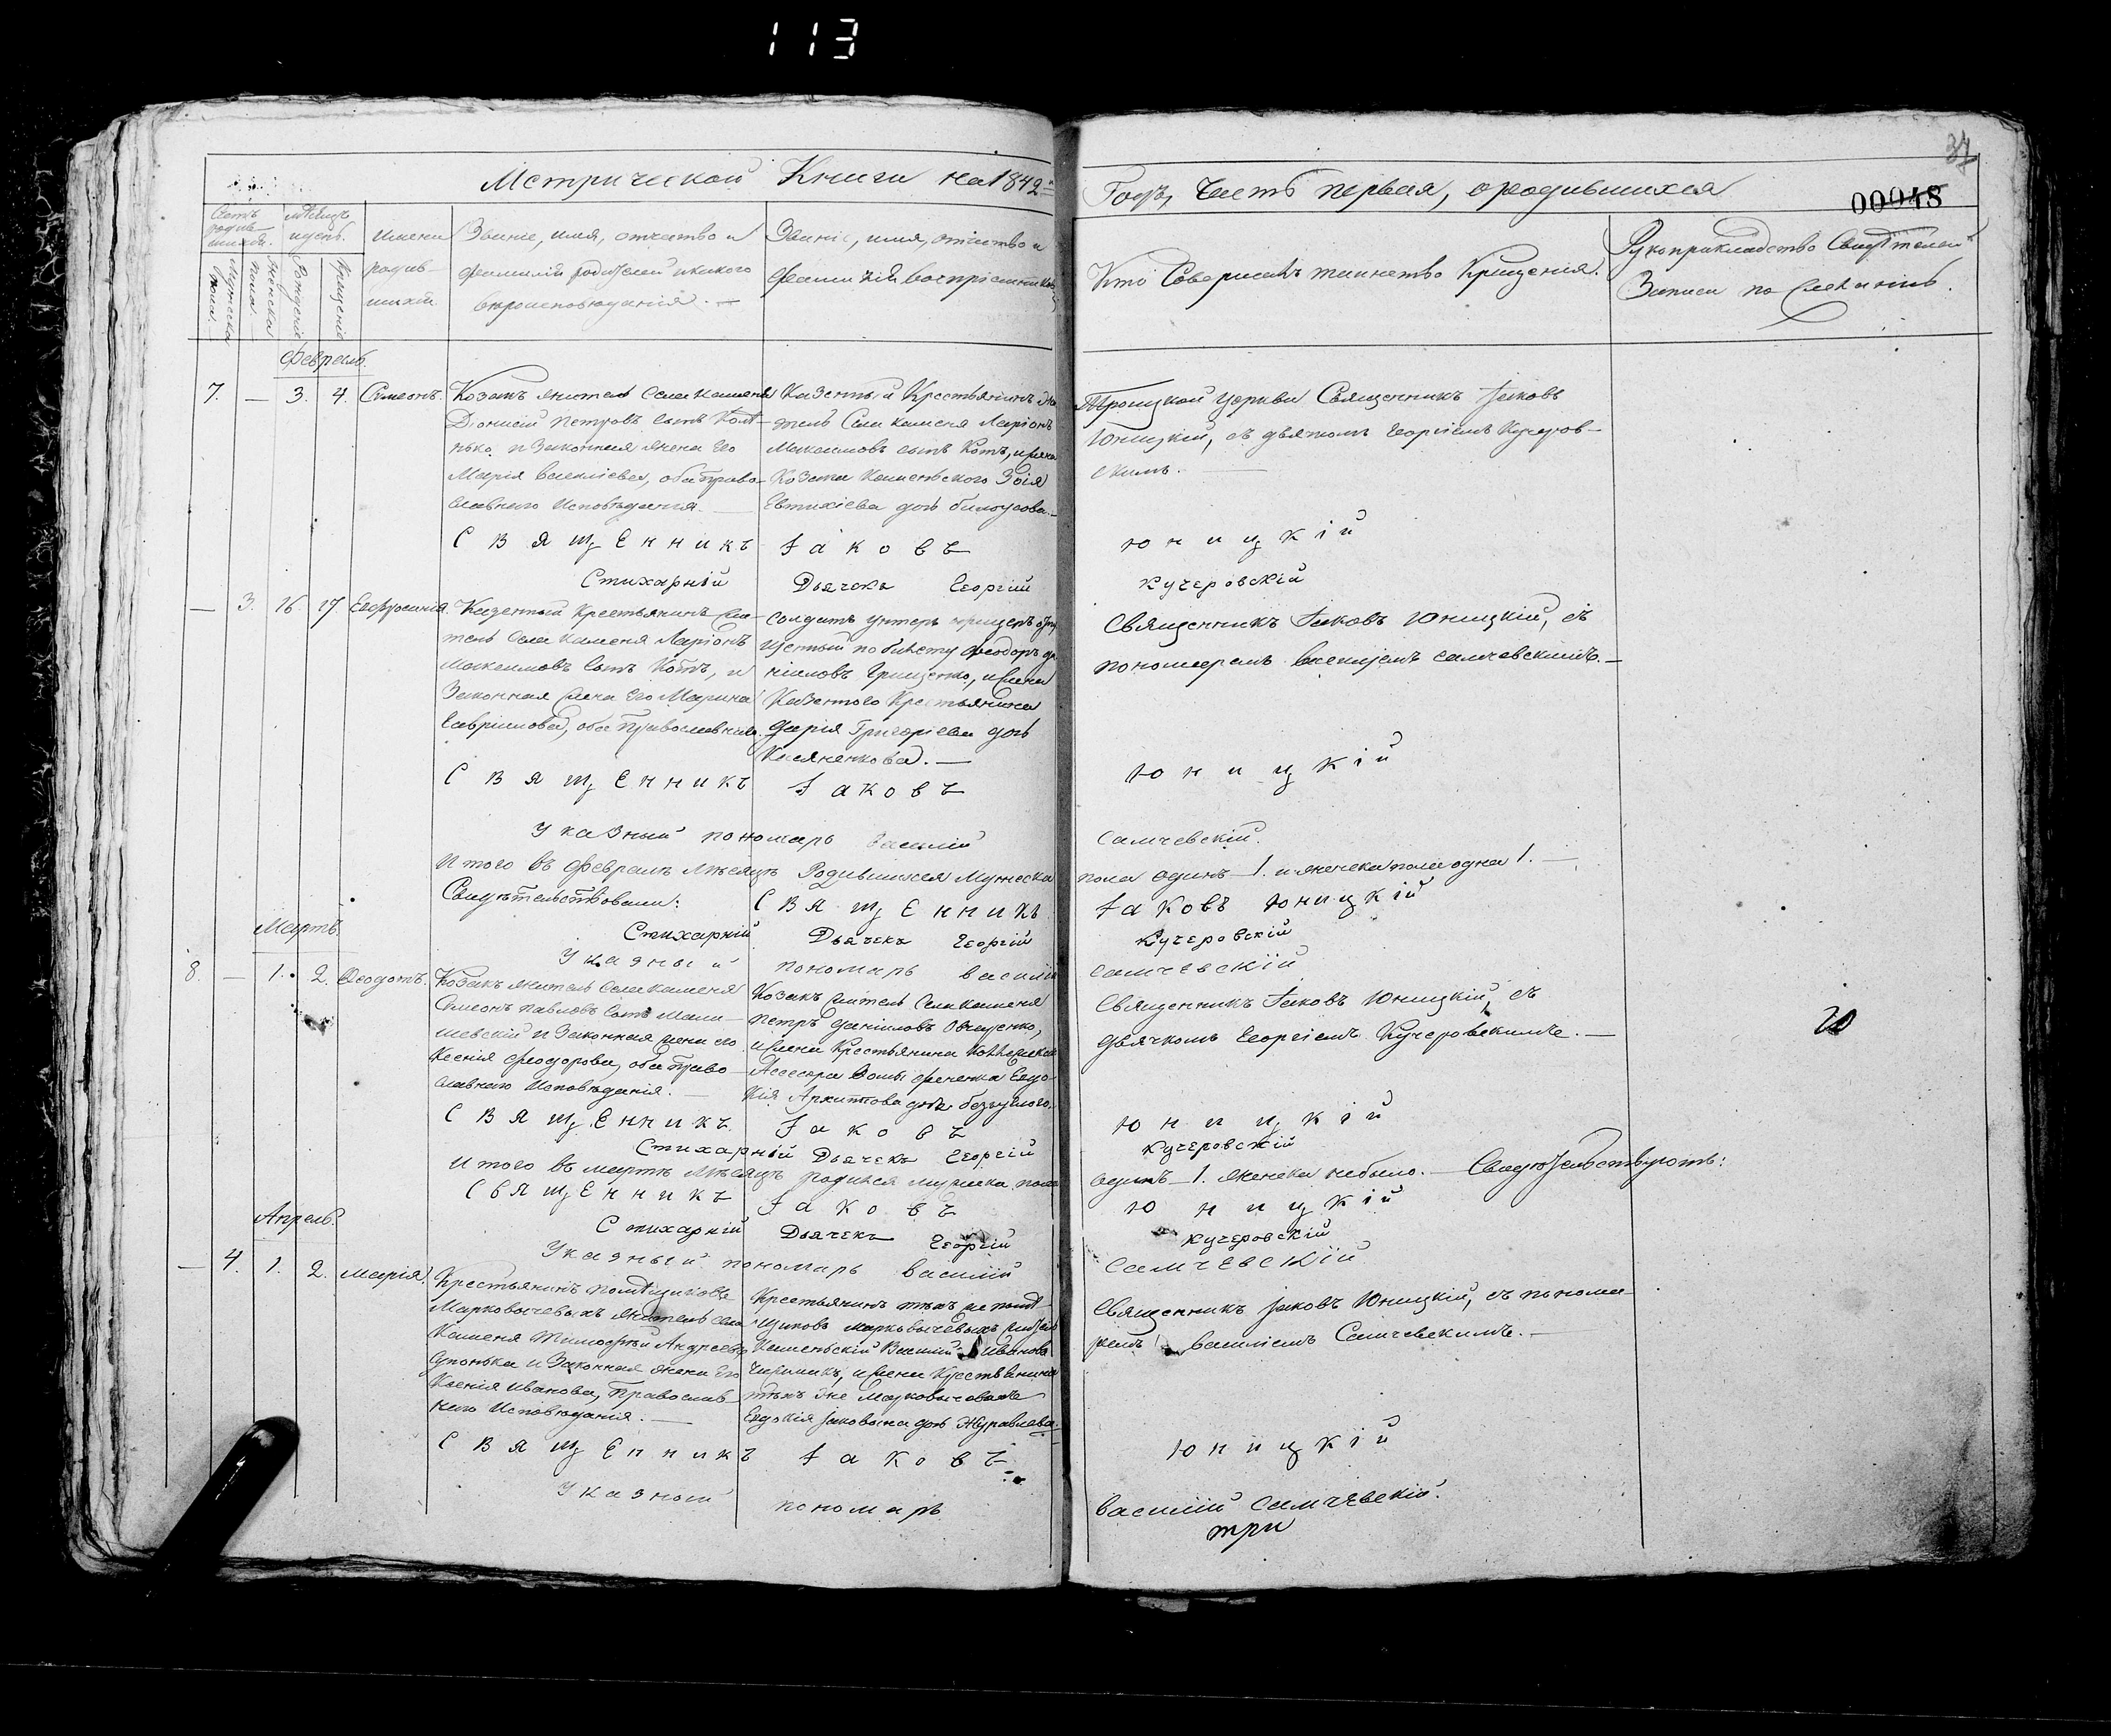 113
37
00048
Метрической Книги на 1842й
Годъ, Часть первая, ородившихся
Счетъ родив-шихся.
Мужеска пола.
Женска пола
мѣсяцъ идень.
Рожденія
Крещенія
Имена родив-шихся
Званіе, имя, отчество и
фамилія родителей икакого
вѣроисповѣданія.
Званіе, имя, отчество и
фамилія воспріемниковъ
Кто Совершалъ таинство Крещенія.
Рукоприкладство Свидѣтелей
Записи по желанію.
Февраль.
7. — 3. 4. Симеонъ.
Козакъ житель Села Каменя
Діонисій Петровъ сынъ
и Законная жена Его
Марія Василіева, оба Право-
славнаго Исповѣданія.
Казенный Крестьянинъ жи
тель Села Каменя Ларіонъ
Максимовъ сынъ Котъ, и жена
Козака Каменского Зоія
Евтихіева дочь Билоусова.
Троицкой Церкви Священникъ Іаковъ
Юницкій, съ дьячкомъ Георгіемъ Кучеров-
скимъ.
Священникъ Іаковъ Юницкій
Стихарный Дьячекъ Георгій Кучеровскій
— 3. 16. 17 Евфросинія.
Казенный Крестьянинъ жи-
тель Села Каменя Ларіонъ
Максимовъ Сынъ Котъ, и
Законная жена Его Марина
Гавриилова, оба Православнаго.
Солдатъ унтеръ офицеръ отпу
щенный по билету Феодоръ Да
ніиловъ Грищенко, и жена
Казенного Крестьянина
Дарія Григоріева дочь
Касяненкова.
Священникъ Іаковъ Юницкій, съ
пономаремъ Василіемъ Самчевскимъ.
Священникъ Іаковъ Юницкій
Указный пономарь Василій Самчевскій.
Итого въ Февралѣ Мѣсяцѣ Родившихся Мужеска пола одинъ 1. и женска пола одна 1.
Свидѣтельствовали: Священникъ Іаковъ Юницкій
Стихарный Дьячекъ Георгій Кучеровскій
Указный пономарь Василій Самчевскій
Мартъ.
8. — 1. 2. Феодотъ.
Козакъ житель Села Каменя
Симеонъ Павловъ Сынъ Мали-
шевскій и Законная жена его
Ксенія Феодорова, оба Право-
славнаго Исповѣданія.
Козакъ житель Села Каменя
Петръ Даніиловъ Онищенко,
и жена Крестьянина Коллежскаго
Асессора Евдо-
кія Архипова дочь
Священникъ Іаковъ Юницкій, съ
дьячкомъ Георгіемъ Кучеровскимъ.
20
Священникъ Іаковъ Юницкій
Стихарный Дьячекъ Георгій Кучеровскій
Итого въ мартѣ Мѣсяцѣ родился мужеска пола одинъ 1. женска небыло. Свидѣтельствуютъ:
Священникъ Іаковъ Юницкій
Стихарный Дьячекъ Георгій Кучеровскій
Указный пономарь Василій Самчевскій
Апрель.
— 4. 1. 2. Марія.
Крестьянинъ помѣщиковъ
Марковичевыхъ житель села
Каменя Тимофей Андреевъ
и Законная жена Его
Ксенія Иванова, Православ-
наго Исповѣданія.
Крестьянинъ тѣхъ же помѣ-
щиковъ Марковичевыхъ житель
Каменскій Василій Ивановъ
и жена Крестьянина
тѣхъ же Марковичевыхъ
Евдокія Іаковлева дочь Журавлева.
Священникъ Іаковъ Юницкій, съ понома-
ремъ Василіемъ Самчевскимъ.
Священникъ Іаковъ Юницкій
Указный пономарь Василій Самчевскій.
три